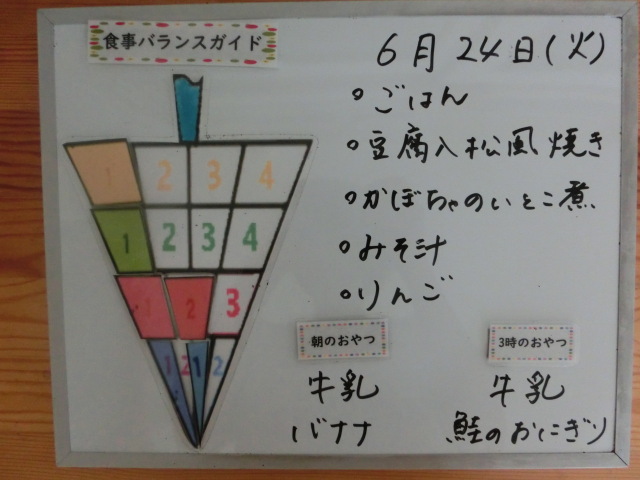 食事バランスガイド
6月24日(火)
○ごはん
○豆腐入松風焼き
○かぼちゃのいとこ煮
○みそ汁
○りんご
1 2 3 4
1 2 3 4
1 2 3
1 2 1 2
朝のおやつ
牛乳
バナナ
3時のおやつ
牛乳
鮭のおにぎり